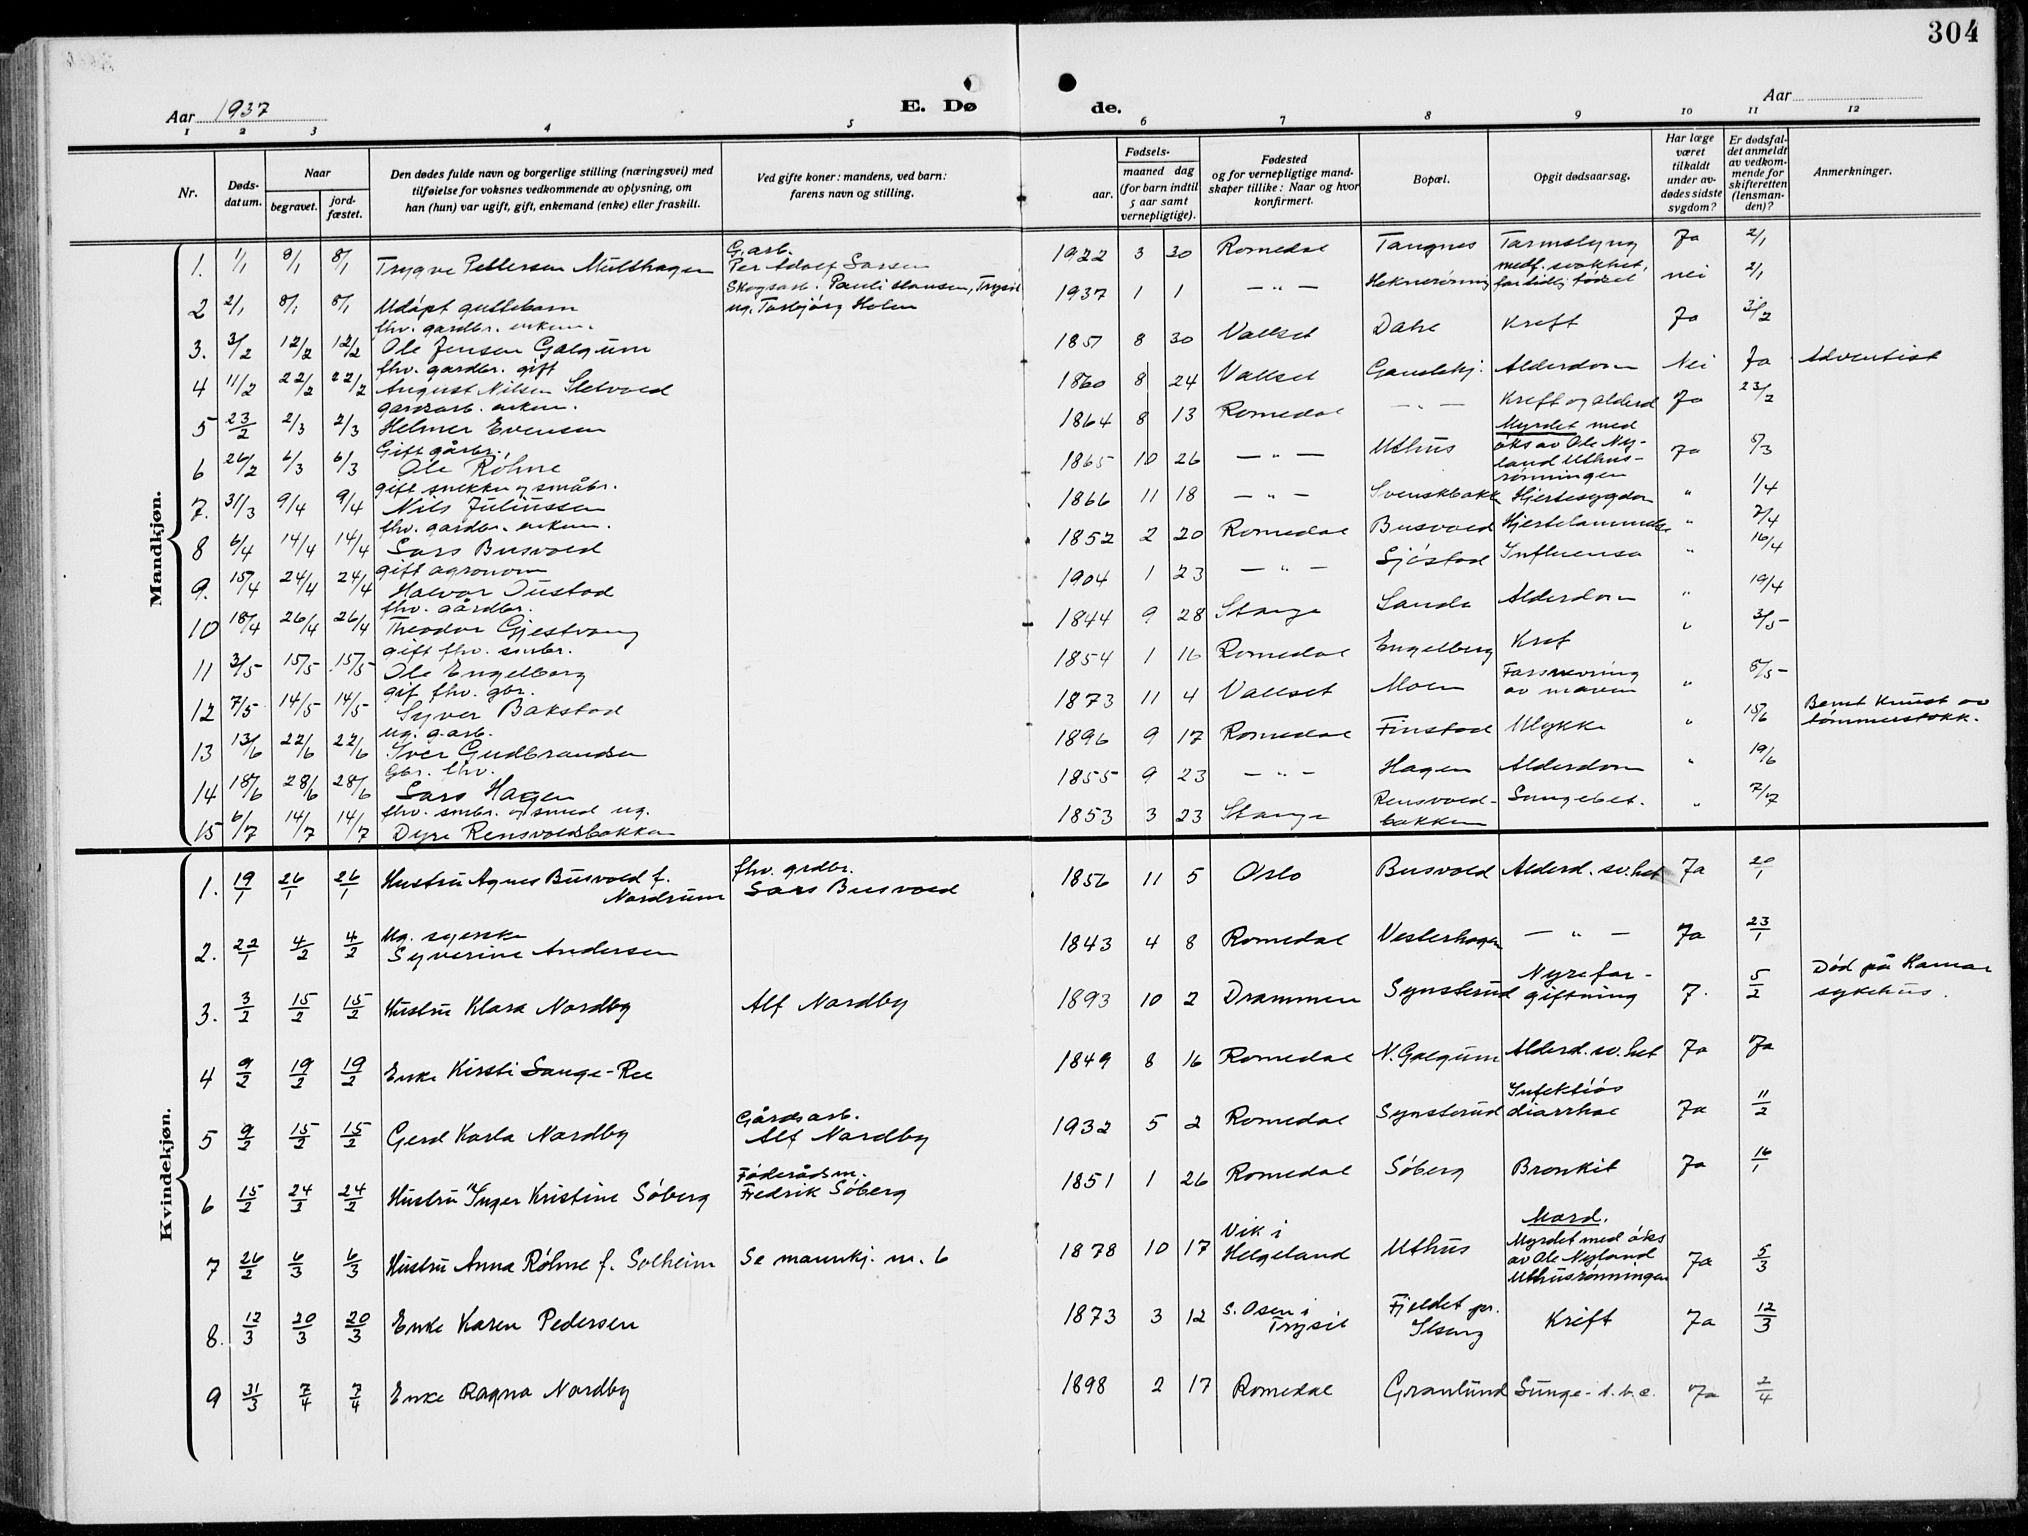 304
Aar 1937
E. Dø de.
Aar
1 2 3 4 5 6 7 8 9 10 11 12
Nr.
Døds-
datum.
Naar
begravet.
jord-
fæstet.
Den dødes fulde navn og borgerlige stilling (næringsvei) med
tilføielse for voksnes vedkommende av oplysning, om
han (hun) var ugift, gift, enkemand (enke) eller fraskilt.
Ved gifte koner: mandens, ved barn:
farens navn og stilling.
Fødsels-
aar.
maaned dag
(for barn indtil
5 aar samt
vernepligtige).
Fødested
og for vernepligtige mand-
skaper tillike: Naar og hvor
konfirmert.
Bopæl.
Opgit dødsaarsag.
Har læge
været
tilkaldt
under av-
dødes sidste
sygdom?
Er dødsfal-
det anmeldt
av vedkom-
mende for
skifteretten
(lensman-
den)?
Anmerkninger.
Mandkjøn.
G.arb.
1. 1/1 9/1 8/1 Trygve Pettersen Multhagen Per Adolf Larsen 1922 3 30 Romedal Tangnes Tarmslyng Ja 2/1
Skogsarb. Pauli Hansen, Trysil
2 2/1 8/1 8/1 Udøpt guttebarn ug. Torbjørg Holen 1937 1 1 — " — medf. svakhet, for tidlig fødsel nei 2/1
fhv. gardbr. enkem.
3. 3/2 12/2 12/2 Ole Jensen Galgum 1851 8 30 Vallset Dahl Kreft Ja 3/2
fhv. gardbr. gift
4 11/2 22/2 22/2 August Nilsen Sletvold 1860 8 24 Vallset Alderdom Nei Ja Adventist
gardsarb. enkem.
5 23/2 2/3 2/3 Helmer Evensen 1864 8 13 Romedal — " — Kreft og alderd Ja 23/2
Gift gårbr.
6 26/2 6/3 6/3 Ole Rohne 1865 10 26 — " — Uthus Myrdet med
øks av Ole Ny-
land Uthus-
rønningen Ja 5/3
gift snekker og småbr.
7. 31/3 9/4 9/4 Nils Juliussen 1866 11 18 — " — Svenskbakk Hjertesygdom " 1/4
fhv. gardbr. enkem.
8 6/4 14/4 14/4 Lars Busvold 1852 2 20 Romedal Busvold Hjertelammelse " 7/4
gift agronom
9. 15/4 24/4 24/4 Halvor Oustad 1904 1 23 — " — Sjøstad Influensa " 16/4
fhv. gårdbr.
10 18/4 26/4 26/4 Theodor Gjestvang 1844 9 28 Stange Sanda Alderdom " 19/4
gift fhv. smbr.
11 3/5 15/5 15/5 Ole Engelberg 1854 1 16 Romedal Engelberg Kref " 3/5
gif fhv. gbr.
12 7/5 14/5 14/5 Syver Bakstad 1873 11 4 Vallset Moen Forsnevring
av maven " 8/5
ug. g.arb.
13 13/6 22/6 22/6 Iver Gudbrandsen 1896 9 17 Romedal Finstad Ulykke " 15/6 Benet knust av
tømmerstokk.
Gbr. fhv.
14 18/6 28/6 28/6 Lars Hagen 1855 9 23 — " — Hagen Alderdom " 19/6
fhv. smbr. og smed ug.
15 6/7 14/7 14/7 Dyre Rensvoldsbakken 1853 3 23 Stange Rensvold-
bakken Lungebet. " 7/7
Kvindekjøn.
1. 19/1 26/1 26/1 Hustru Agnes Busvold f.
Nordrum fhv. grdbr.
Lars Busvold 1856 11 5 Oslo Busvold Alderd. sv.het Ja 20/1
Ug. syerske
2. 22/1 4/2 4/2 Syverine Andersen 1843 4 8 Romedal Vesterhagen — " — Ja 23/1
3. 3/2 15/2 15/2 Hustru Klara Nordby Alf Nordby 1893 10 2 Drammen Synsterud Nyrefor-
giftning J. 5/2 Død på Hamar
sykehus.
4 9/2 19/2 19/2 Enke Kirsti Lange-Ree 1849 8 16 Romedal N. Galgum Alderd. sv.het Ja Ja
5 9/2 15/2 15/2 Gerd Karla Nordby Gårdsarb.
Alf Nordby 1932 5 2 Romedal Synsterud Infektiøs
diarrhoe Ja 11/2
6 15/2 24/2 24/2 Hustru Inger Kristine Søberg Føderådsm.
Fredrik Søberg 1851 1 26 Romedal Søberg Bronkit Ja 16/1
7 26/2 6/3 6/3 Hustru Anna Röhne f. Solheim Se mannkj. nr. 6 1878 10 17 Vik i
Helgeland Uthus Mord.
Myrdet med øks
av Ole Nyland
Uthusrønningen Ja 5/3
8. 12/3 20/3 20/3 Enke Karen Pedersen 1873 3 12 S. Osen i
Trysil Fjeldet pr.
Ilseng Kreft Ja 12/3
9 31/3 7/4 7/4 Enke Ragna Nordby 1898 2 17 Romedal Granlund Lunge-t.b.c. Ja 2/4